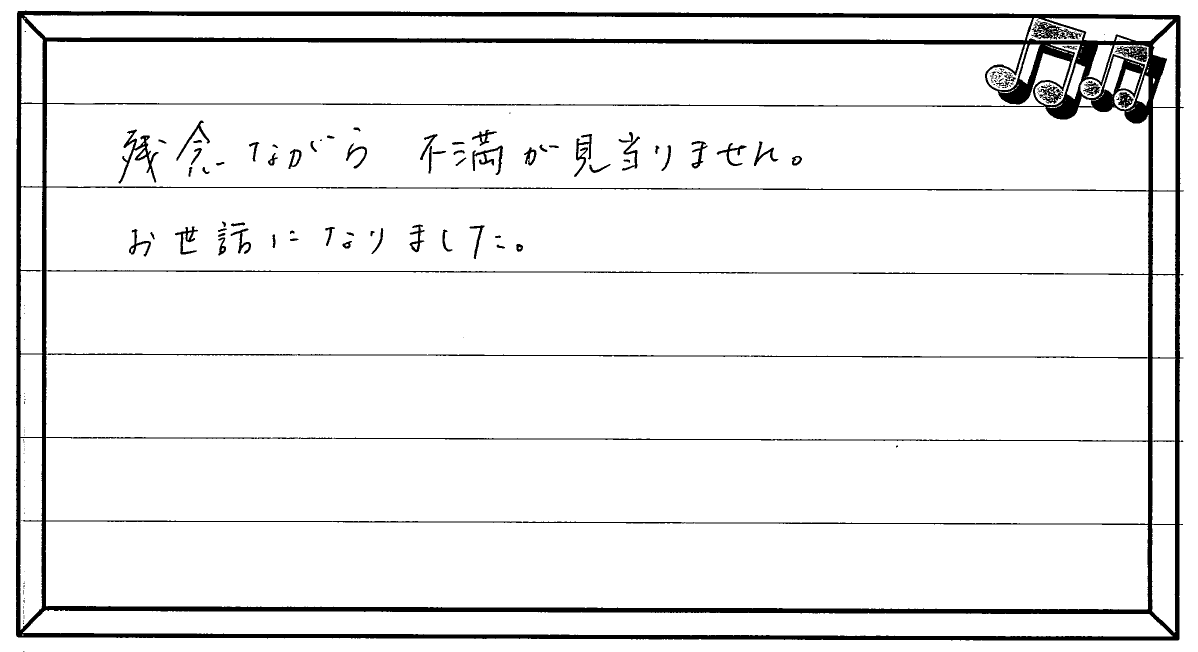 残念ながら 不満が見当りません。
お世話になりました。